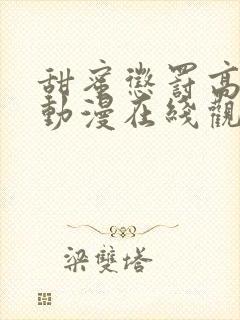 甜蜜懲罰高
動漫在綫觀
梁雙塔